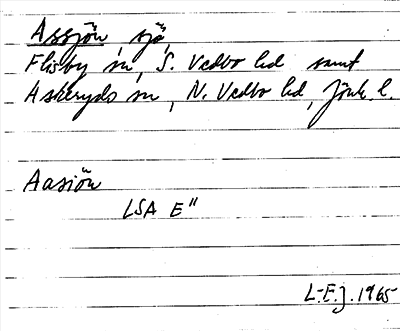 Assjön sjö,
Flisby sn, S. Vedbo hd samt
Askeryds sn, N. Vedbo hd, Jönk. l.
Aasiön
LSA E"
L-E.J. 1965